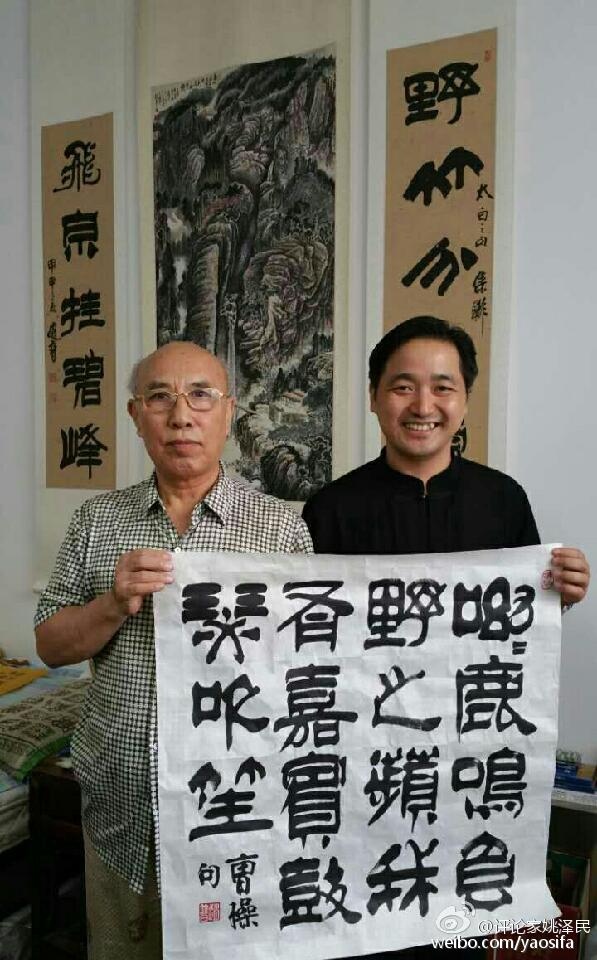 野竹分
太白之句
飛泉挂碧峰
呦〻鹿鳴食
野之蘋我
有嘉賓鼓
瑟吹笙
曹操
句
@评论家姚泽民
weibo.com/yaosifa